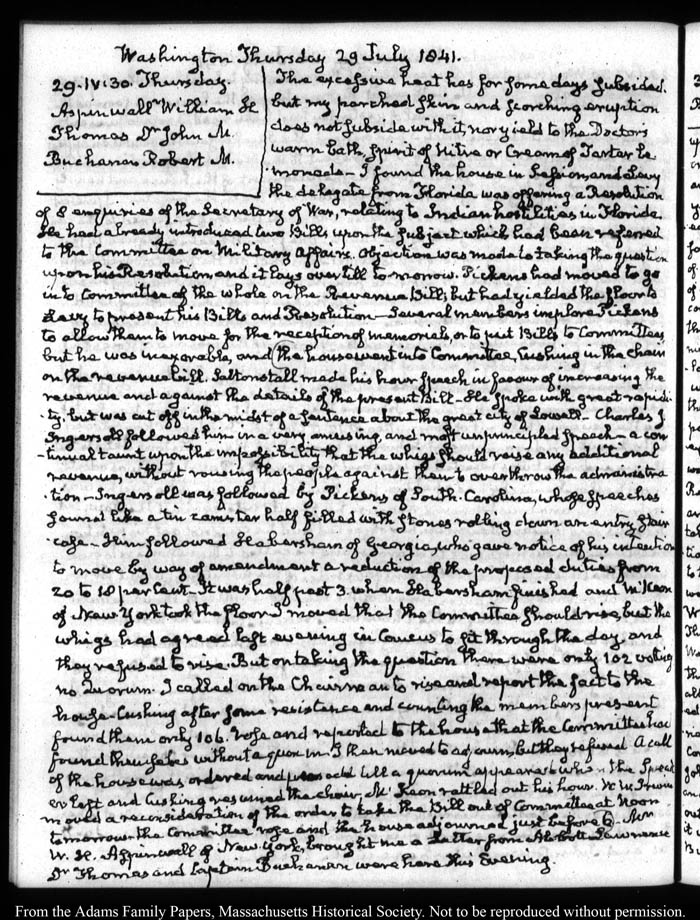 Washington Thursday 29 July 1841.
29. IV:30. Thursday.
Aspinwall William H
Thomas Dr John M.
Buchanan Robert M.
The excessive heat has for some days subsided.
but my parched skin and scorching eruption
does not subside with it, nor yield to the Doctors
warm bath, Spirit of Nitre or Cream of Tartar Le
-monade - I found the house in Session, and Levy
the delegate from Florida was offering a Resolution
of 8 enquiries of the Secretary of War, relating to Indian hostilities in Florida
He had already introduced two Bills upon the subject which had been referred
to the Committee on Military Affairs. Objection was made to taking the question
upon his Resolution, and it lays over till to morrow. Pickens had moved to go
into Committee of the whole on the Revenue Bill; but had yielded the floor to
Levy to present his Bills and Resolution - Several members implored Pickens
to allow them to move for the reception of memorials, or to put Bills to Committees,
but he was inexorable, and the house went into Committee, Cushing in the chair
on the revenue bill. Saltonstall made his hour speech in favour of increasing the
revenue and against the details of the present Bill - He spoke with great rapidi
-ty, but was cut off in the midst of a sentence about the great city of Lowell - Charles J.
Ingersoll followed him in a very amusing, and most unprincipled speech - a con
-tinual taunt upon the impossibility that the whigs should raise any additional
revenue, without rousing the people against them to overthrow the administra
-tion - Ingersoll was followed by Pickens of South Carolina, whose speeches
sound like a tin canister half filled with stones rolling down an entry stair
case - Him followed Habersham of Georgia, who gave notice of his intention
to move by way of amendment a reduction of the proposed duties from
20 to 18 per Cent - It was half past 3. when Habersham finished and
of New York took the floor I moved that the Committee should rise, but the
whigs had agreed last evening in Caucus to sit through the day, and
they refused to rise. But on taking the question there were only 102 voting
no Quorum. I called on the Chairman to rise and report the fact to the
house - Cushing after some resistance and counting the members present
found them only 106. rose and reported to the house that the Committee had
found themselves without a quorum. I then moved to adjourn, but they refused. A call
of the house was ordered and till a quorum appeared when the Speak
er left and Cushing resumed the chair, Mc Keon rattled out his hour. W. W. Irwin
moved a reconsideration of the order to take the Bill out of Committee at Noon
tomorrow. the Committee rose and the house adjourned just before 6.
W. H. Aspinwall of New York, brought me a Letter from Abbott Lawrence
Dr Thomas and Captain Buchanan were here this Evening.
From the Adams Family Papers, Massachusetts Historical Society. Not to be reproduced without permission.